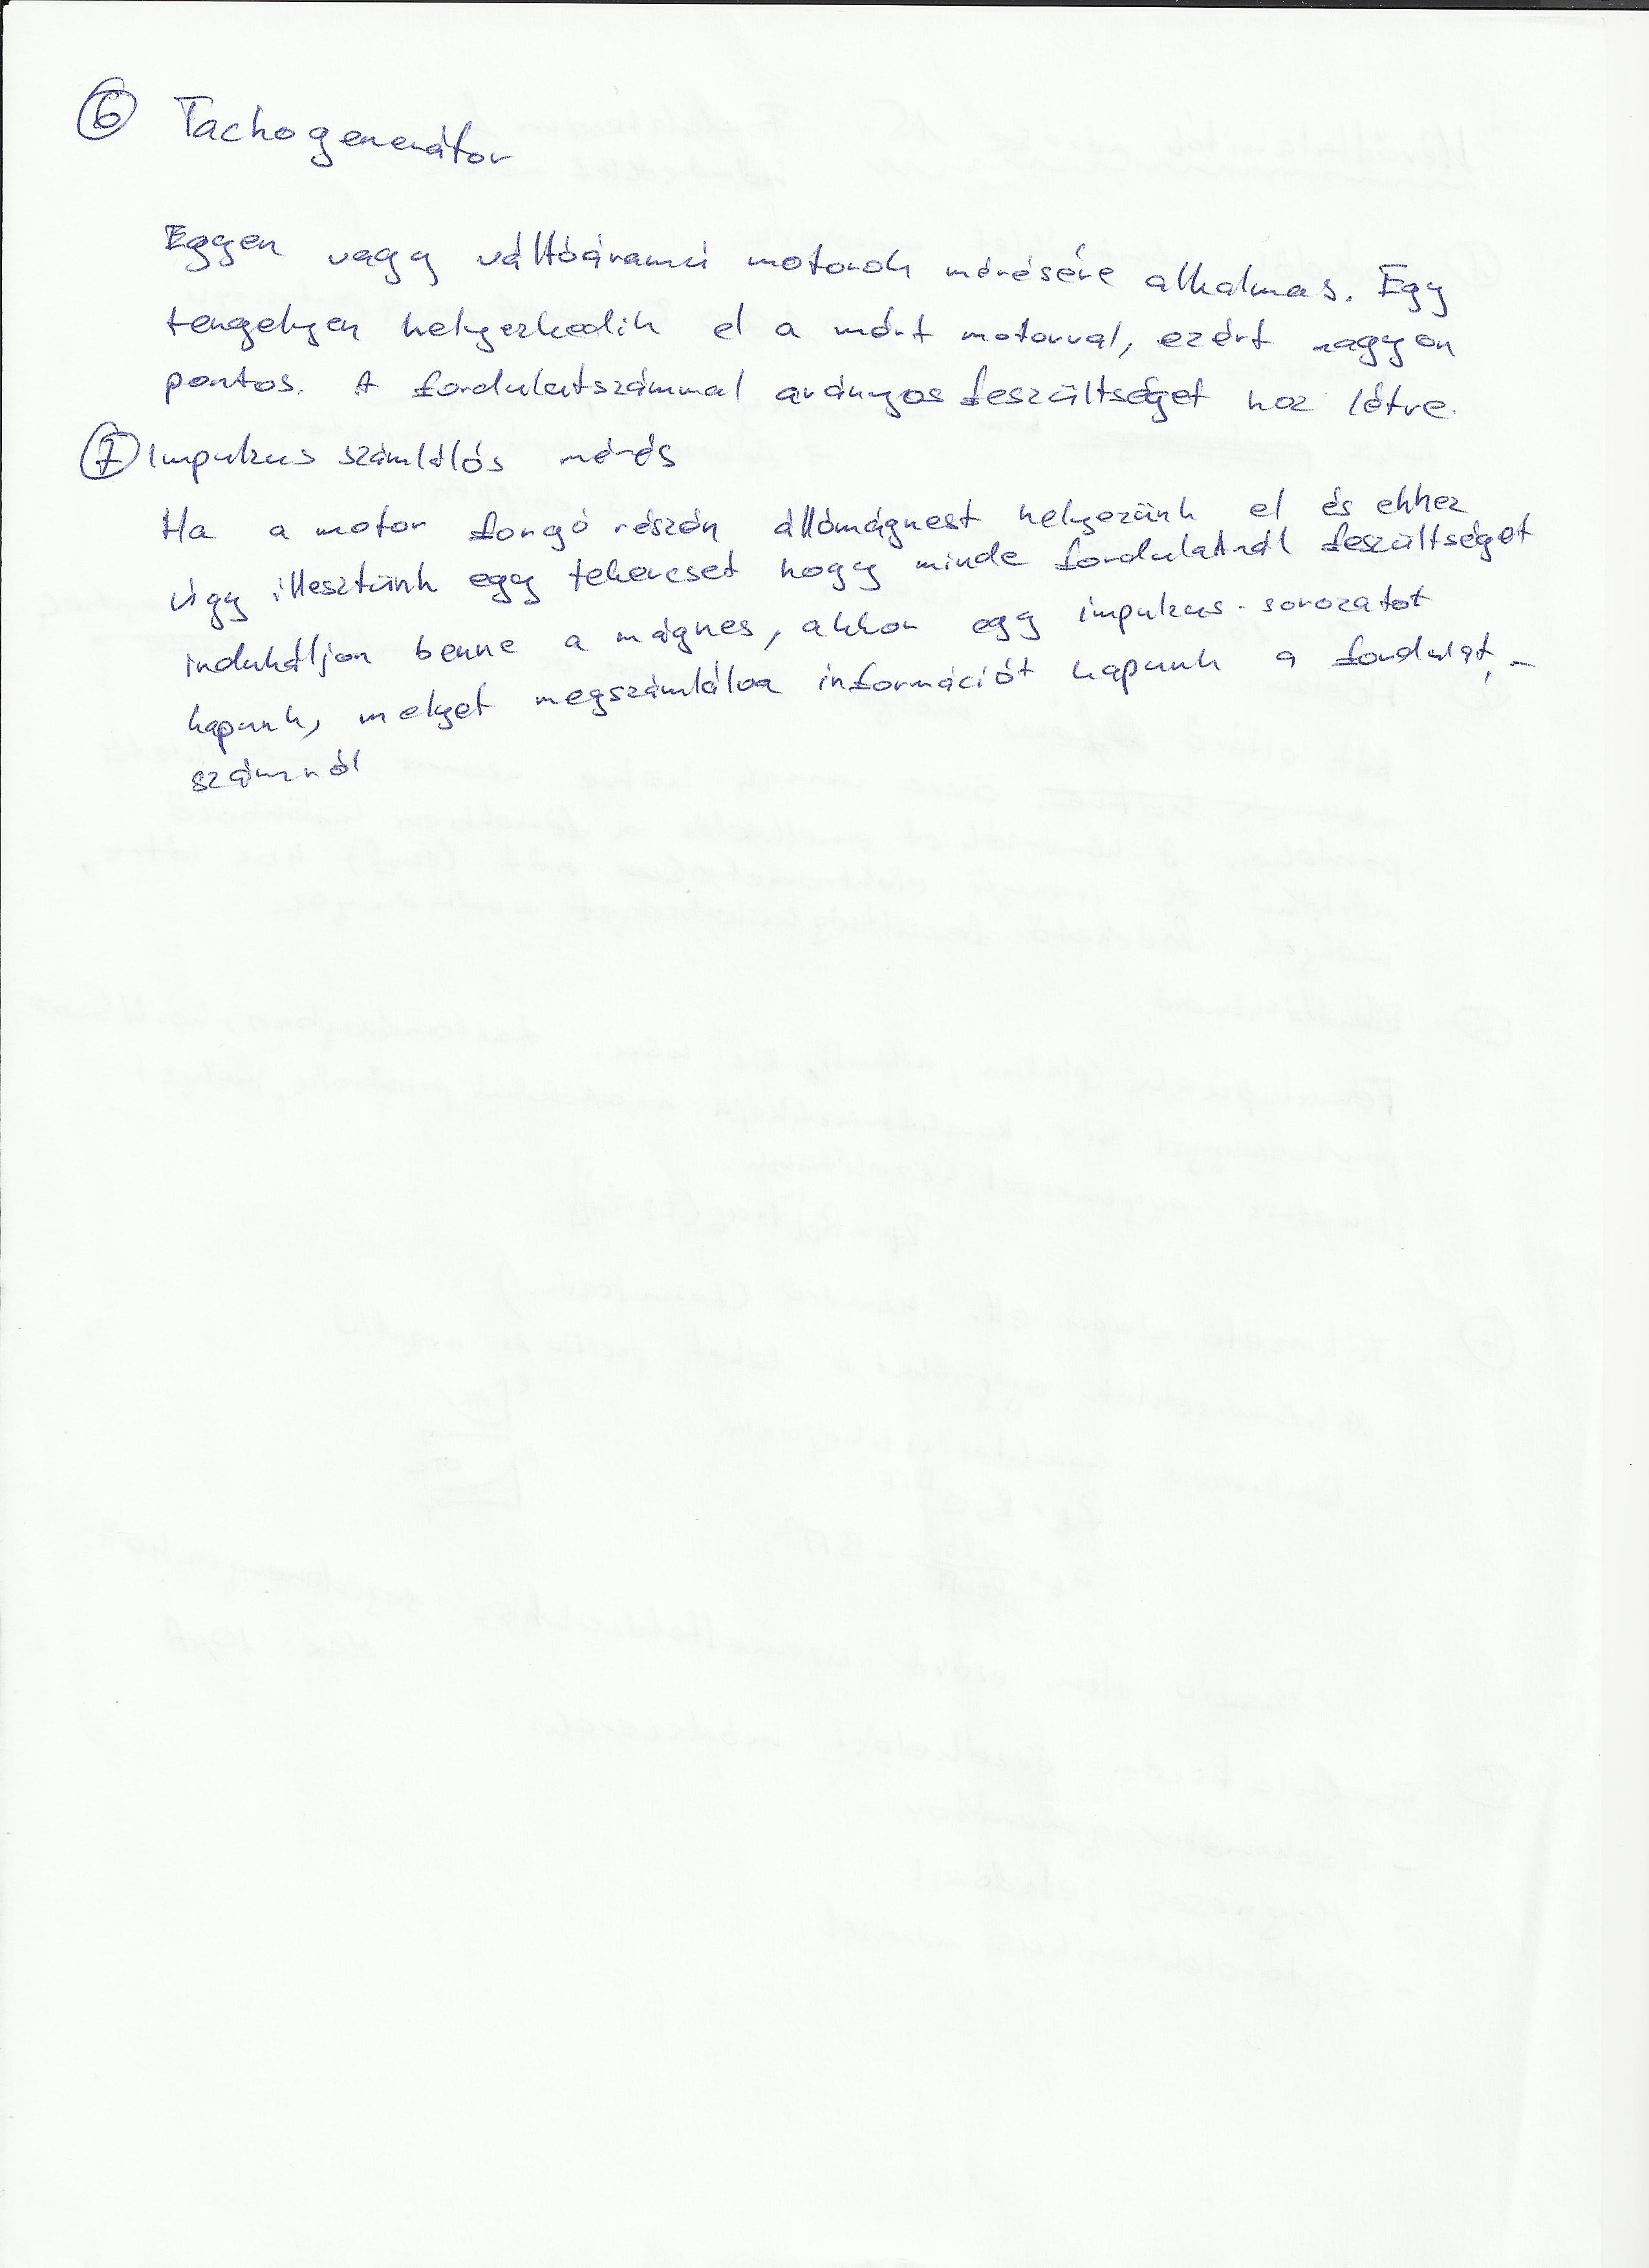 ⑥ Tachogenerátor
Egyen vagy váltóáramú motorok mérésére alkalmas. Egy
tengelyen helyezkedik el a mért motorral, ezért nagyon
pontos. A fordulatszámmal arányos feszültséget hoz létre.
⑦ Impulzus számlálós mérés
Ha a motor forgó részén állómágnest helyezünk el és ehhez
úgy illesztünk egy tekercset hogy minde fordulatnál feszültséget
indukáljon benne a mágnes, akkor egy impulzus-sorozatot
kapunk, melyet megszámlálva információt kapunk a fordulat-
számról